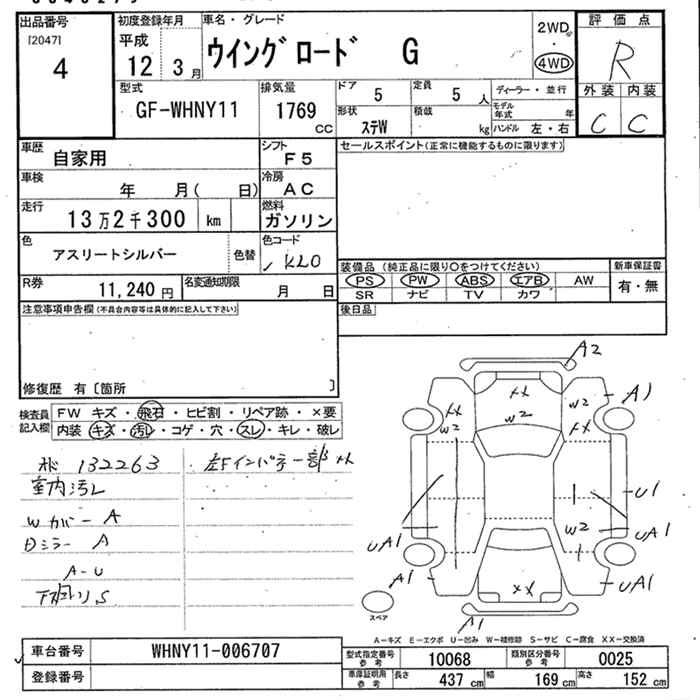 出品番号
[2047]
4
初度登録年月
平成
12 3月
車名・グレード
ウイングロード G
2WD
・
4WD
評価点
R
外装 内装
C C
型式
GF-WHNY11
排気量
1769
cc
ドア
5
定員
5 人
形状
ステW
積載
kg
ディーラー・並行
モデル年式 年
ハンドル 左・右
車歴
自家用
シフト
F5
車検
年 月( 日)
冷房
AC
走行
13万2千300 km
燃料
ガソリン
色
アスリートシルバー
色替
色コード
KL0
R券
11,240 円
名変通知期限
月 日
セールスポイント(正常に機能するものに限ります)
装備品 (純正品に限り○をつけてください)
新車保証書
PS PW ABS エアB AW
有・無
SR ナビ TV カワ
後日品
注意事項申告欄(不具合内容等は具体的に記入して下さい)
修復歴 有〔箇所 〕
検査員記入欄
FW キズ・飛石・ヒビ割・リペア跡・×要
内装 キズ・汚レ・コゲ・穴・スレ・キレ・破レ
132263
室内汚レ
Wカバー A
Dミラー A
A-U
下廻りS
左Fインパネ一部
A2
A1
XX
W2
XX
W2
W2
XX
U1
W2
UA1
UA1
A1
UA1
XX
A1
スペア
A-キズ E-エクボ U-凹み W-補修跡 S-サビ C-腐食 XX-交換済
車台番号
WHNY11-006707
登録番号
型式指定番号 参考
10068
類別区分番号 参考
0025
車庫証明用 参考
長さ 437 cm
幅 169 cm
高さ 152 cm